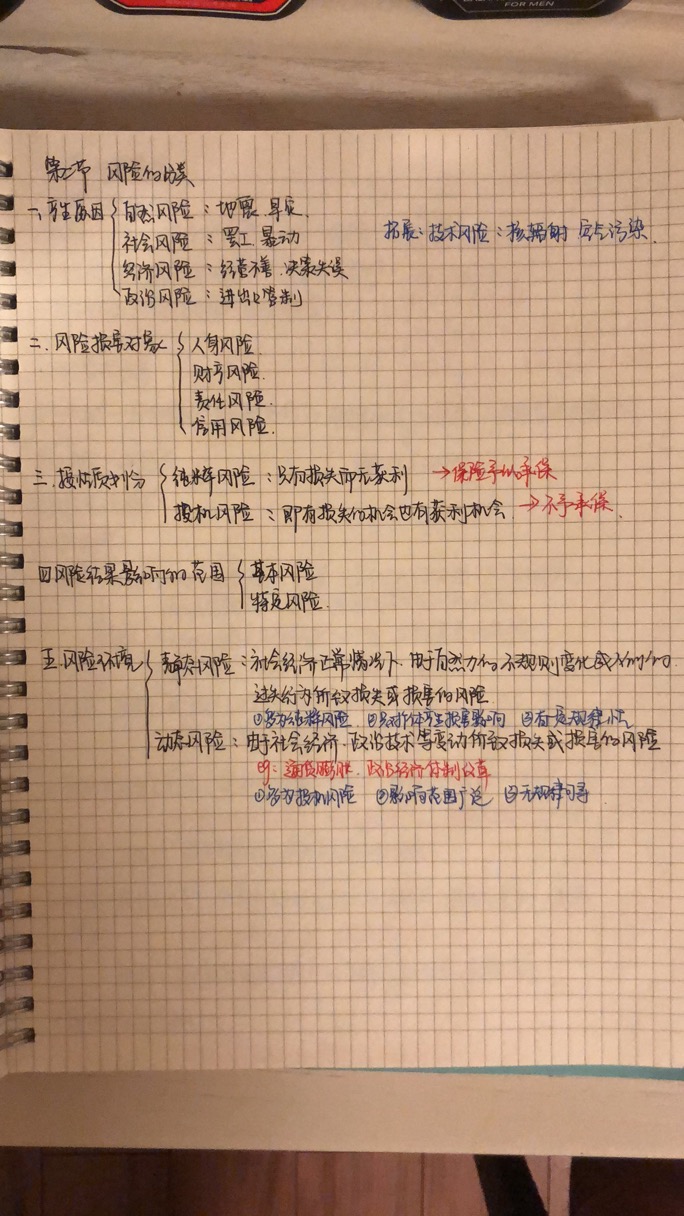 FOR MEN
第二节 风险的分类
一、产生原因 自然风险：地震、旱灾
社会风险：罢工、暴动 拓展：技术风险：核辐射 污染
经济风险：经营不善、决策失误
政治风险：进出口管制
二、风险损害对象 人身风险
财产风险
责任风险
信用风险
三、按性质划份 纯粹风险：只有损失而无获利 →保险予以承保
投机风险：即有损失的机会也有获利机会 →不予承保
四 风险结果影响的范围 基本风险
特定风险
五、风险环境 静态风险：社会经济正常情况下、由于自然力的不规则变化或人们的
过失行为所致损失或损害的风险
①多为纯粹风险 ②只对个体产生损害影响 ③有一定规律性
动态风险：由于社会经济、政治技术等变动所致损失或损害的风险
eg：通货膨胀、政治经济体制改革
①多为投机风险 ②影响范围广泛 ③无规律可寻